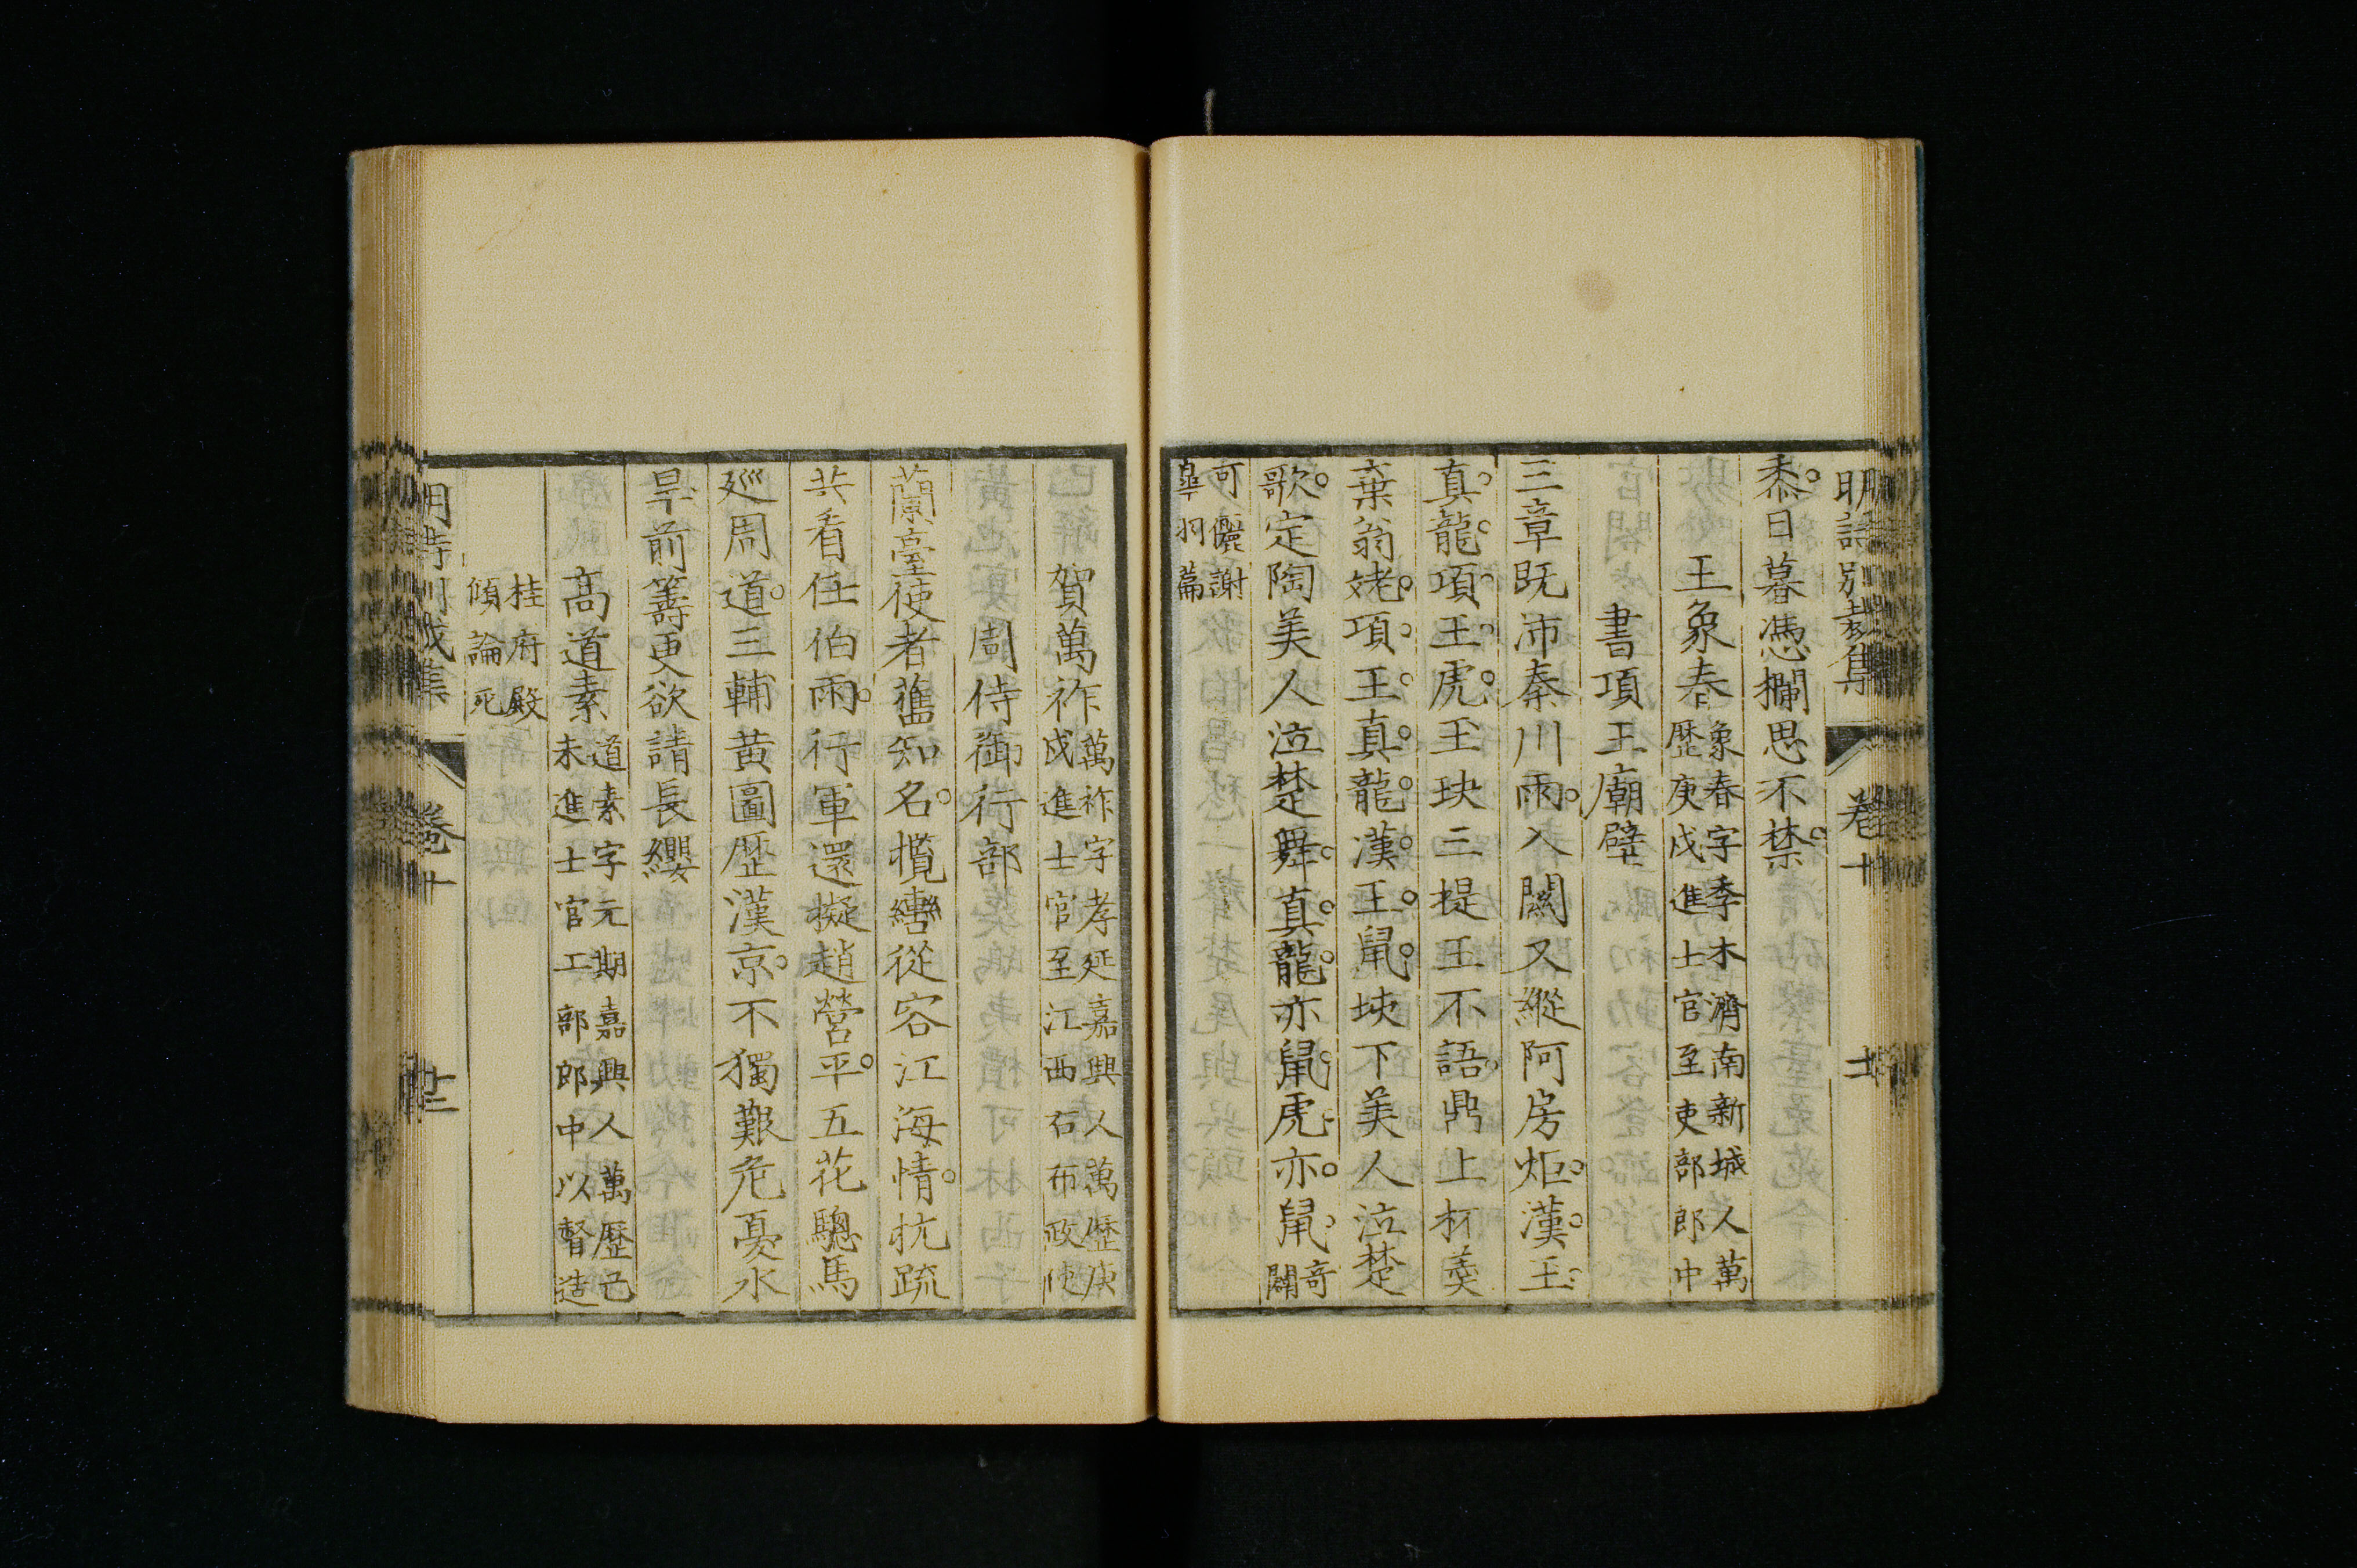 明詩別裁集 卷十 十二
黍日暮憑欄思不禁
王象春象春字季木濟南新城人萬
歷庚戌進士官至吏部郎中
書項王廟壁
三章既沛秦川雨入關又縱阿房炬漢王
真龍項王虎玉玦三提王不語鼎上杯羹
棄翁姥項王真龍漢王鼠垓下美人泣楚
歌定陶美人泣楚舞真龍亦鼠虎亦鼠奇闢
可儷謝
皐羽篇
賀萬祚萬祚字孝延嘉興人萬歷庚
戌進士官至江西右布政使
周侍御行部
蘭臺使者舊知名攬轡從容江海情抗疏
共看任伯雨行軍還擬趙營平五花驄馬
廵周道三輔黃圖歷漢京不獨艱危憂水
旱前籌更欲請長纓
高道素道素字元期嘉興人萬歷己
未進士官工部郎中以督造
桂府殿
傾論死
明詩別裁集 卷十 十三